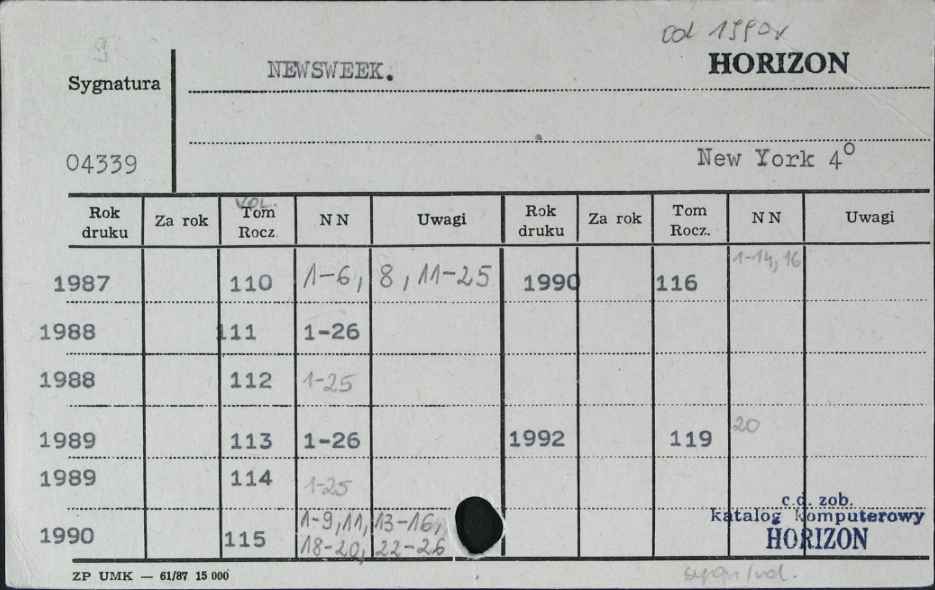 od 1990r
9
NEWSWEEK. HORIZON
Sygnatura
04339 New York 4°
VOL.
Rok druku Za rok Tom Rocz. N N Uwagi Rok druku Za rok Tom Rocz. N N Uwagi
1987 110 1-6, 8, 11-25 1990 116 1-14, 16
1988 111 1-26
1988 112 1-25
1989 113 1-26 1992 119 20
1989 114 1-25
1990 115 1-9, 11, 13-16,
18-20, 22-26
c.d. zob.
katalog komputerowy
HORIZON
ZP UMK — 61/87 15 000